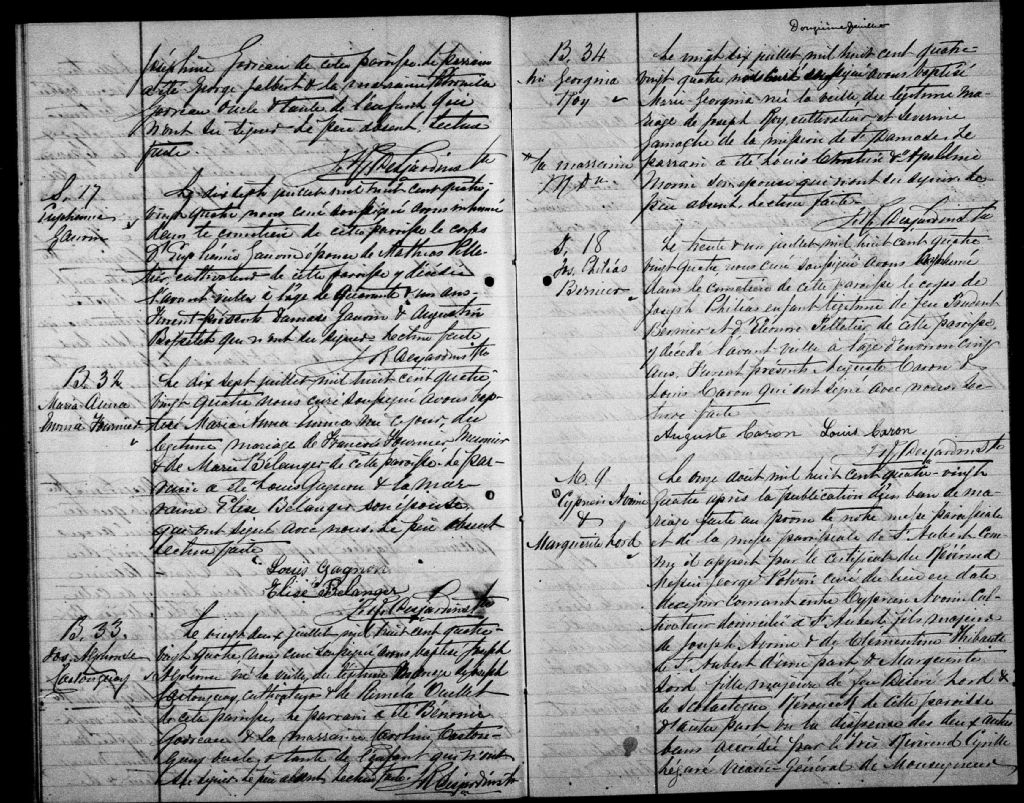 Joséphine Godreau de cette paroisse. Le parrain
a été George Jalbert & la marraine
Godreau oncle & tante de l'enfant qui
n'ont su signer. Le père absent. Lecture
faite.
Desjardins Ptre
S. 17
Euphémie
Gauvin
Le dix sept juillet mil huit cent quatre
vingt quatre nous curé soussigné avons inhumé
dans le cimetière de cette paroisse le corps
D' Euphémie Gauvin épouse de Mathias Pelle-
tier, cultivateur de cette paroisse y décédée
l'avant veille à l'âge de quarante & un ans.
Furent présents Damase Gauvin & Augustin
qui n'ont su signer. Lecture faite
Desjardins Ptre
B. 32
Maria Anna
Emma Fournier
Le dix sept juillet mil huit cent quatre
vingt quatre nous curé soussigné avons bap-
tisé Maria Anna Emma née ce jour, du
légitime mariage de François Fournier, Meunier
& de Marie Bélanger de cette paroisse. Le par-
rain a été Louis Gagnon & la mar-
raine Elise Bélanger son épouse
qui ont signé avec nous. Le père absent
Lecture faite
Louis Gagnon
Elise Belanger
Desjardins Ptre
B. 33.
Jos. Alphonse
Castonguay
Le vingt deux juillet mil huit cent quatre
vingt quatre nous curé soussigné avons baptisé Joseph
Alphonse né la veille du légitime mariage de Joseph
Castonguay, cultivateur & de Ouellet
de cette paroisse. Le parrain a été Bénonie
Godreau & la marraine Caroline Caston-
guay oncle & tante de l'enfant qui n'ont
su signer le père absent. Lecture faite.
Desjardins Ptre
Douzième feuillet
B. 34
M. Georgina
Roy
la marraine
Le vingt six juillet mil huit cent quatre-
vingt quatre nous curé soussigné avons baptisé
Marie Georgina née la veille du légitime ma-
riage de Joseph Roy, cultivateur et
Gamache de la mission de St Pamphile. Le
parrain a été Louis & D.
Morin son épouse qui n'ont su signer. Le
père absent. Lecture faite.
Desjardins Ptre
S. 18
Jos. Philias
Bernier
Le trente & un juillet mil huit cent quatre
vingt quatre nous curé soussigné avons inhumé
dans le cimetière de cette paroisse le corps de
Joseph Philias enfant légitime de feu Prudent
Bernier et d' Eléonore Pelletier de cette paroisse,
y décédé l'avant veille à l'âge d'environ cinq
ans. Furent présents Auguste Caron &
Louis Caron qui ont signé avec nous. Lec
ture faite
Auguste Caron Louis Caron
Desjardins Ptre
M. 9
Cyprien Morin
&
Marguerite Lord
Le onze août mil huit cent quatre-vingt
quatre après la publication d'un ban de ma-
riage faite au prône de notre messe paroissiale
et de la messe paroissiale de St Aubert com
me il appert par le certificat du Révérend
Messire George Potvin curé du lieu en date
du dix courant entre Cyprien Morin cul-
tivateur domicilié à St Aubert fils majeur
de Joseph Morin & de Clémentine Thibault
de St Aubert d'une part & Marguerite
Lord fille majeure de feu Lord &
de Scholastique de cette paroisse
d'autre part vu la dispense des deux autres
bans accordée par le Très Révérend Cyrille
Légaré Vicaire-Général de Monseigneur